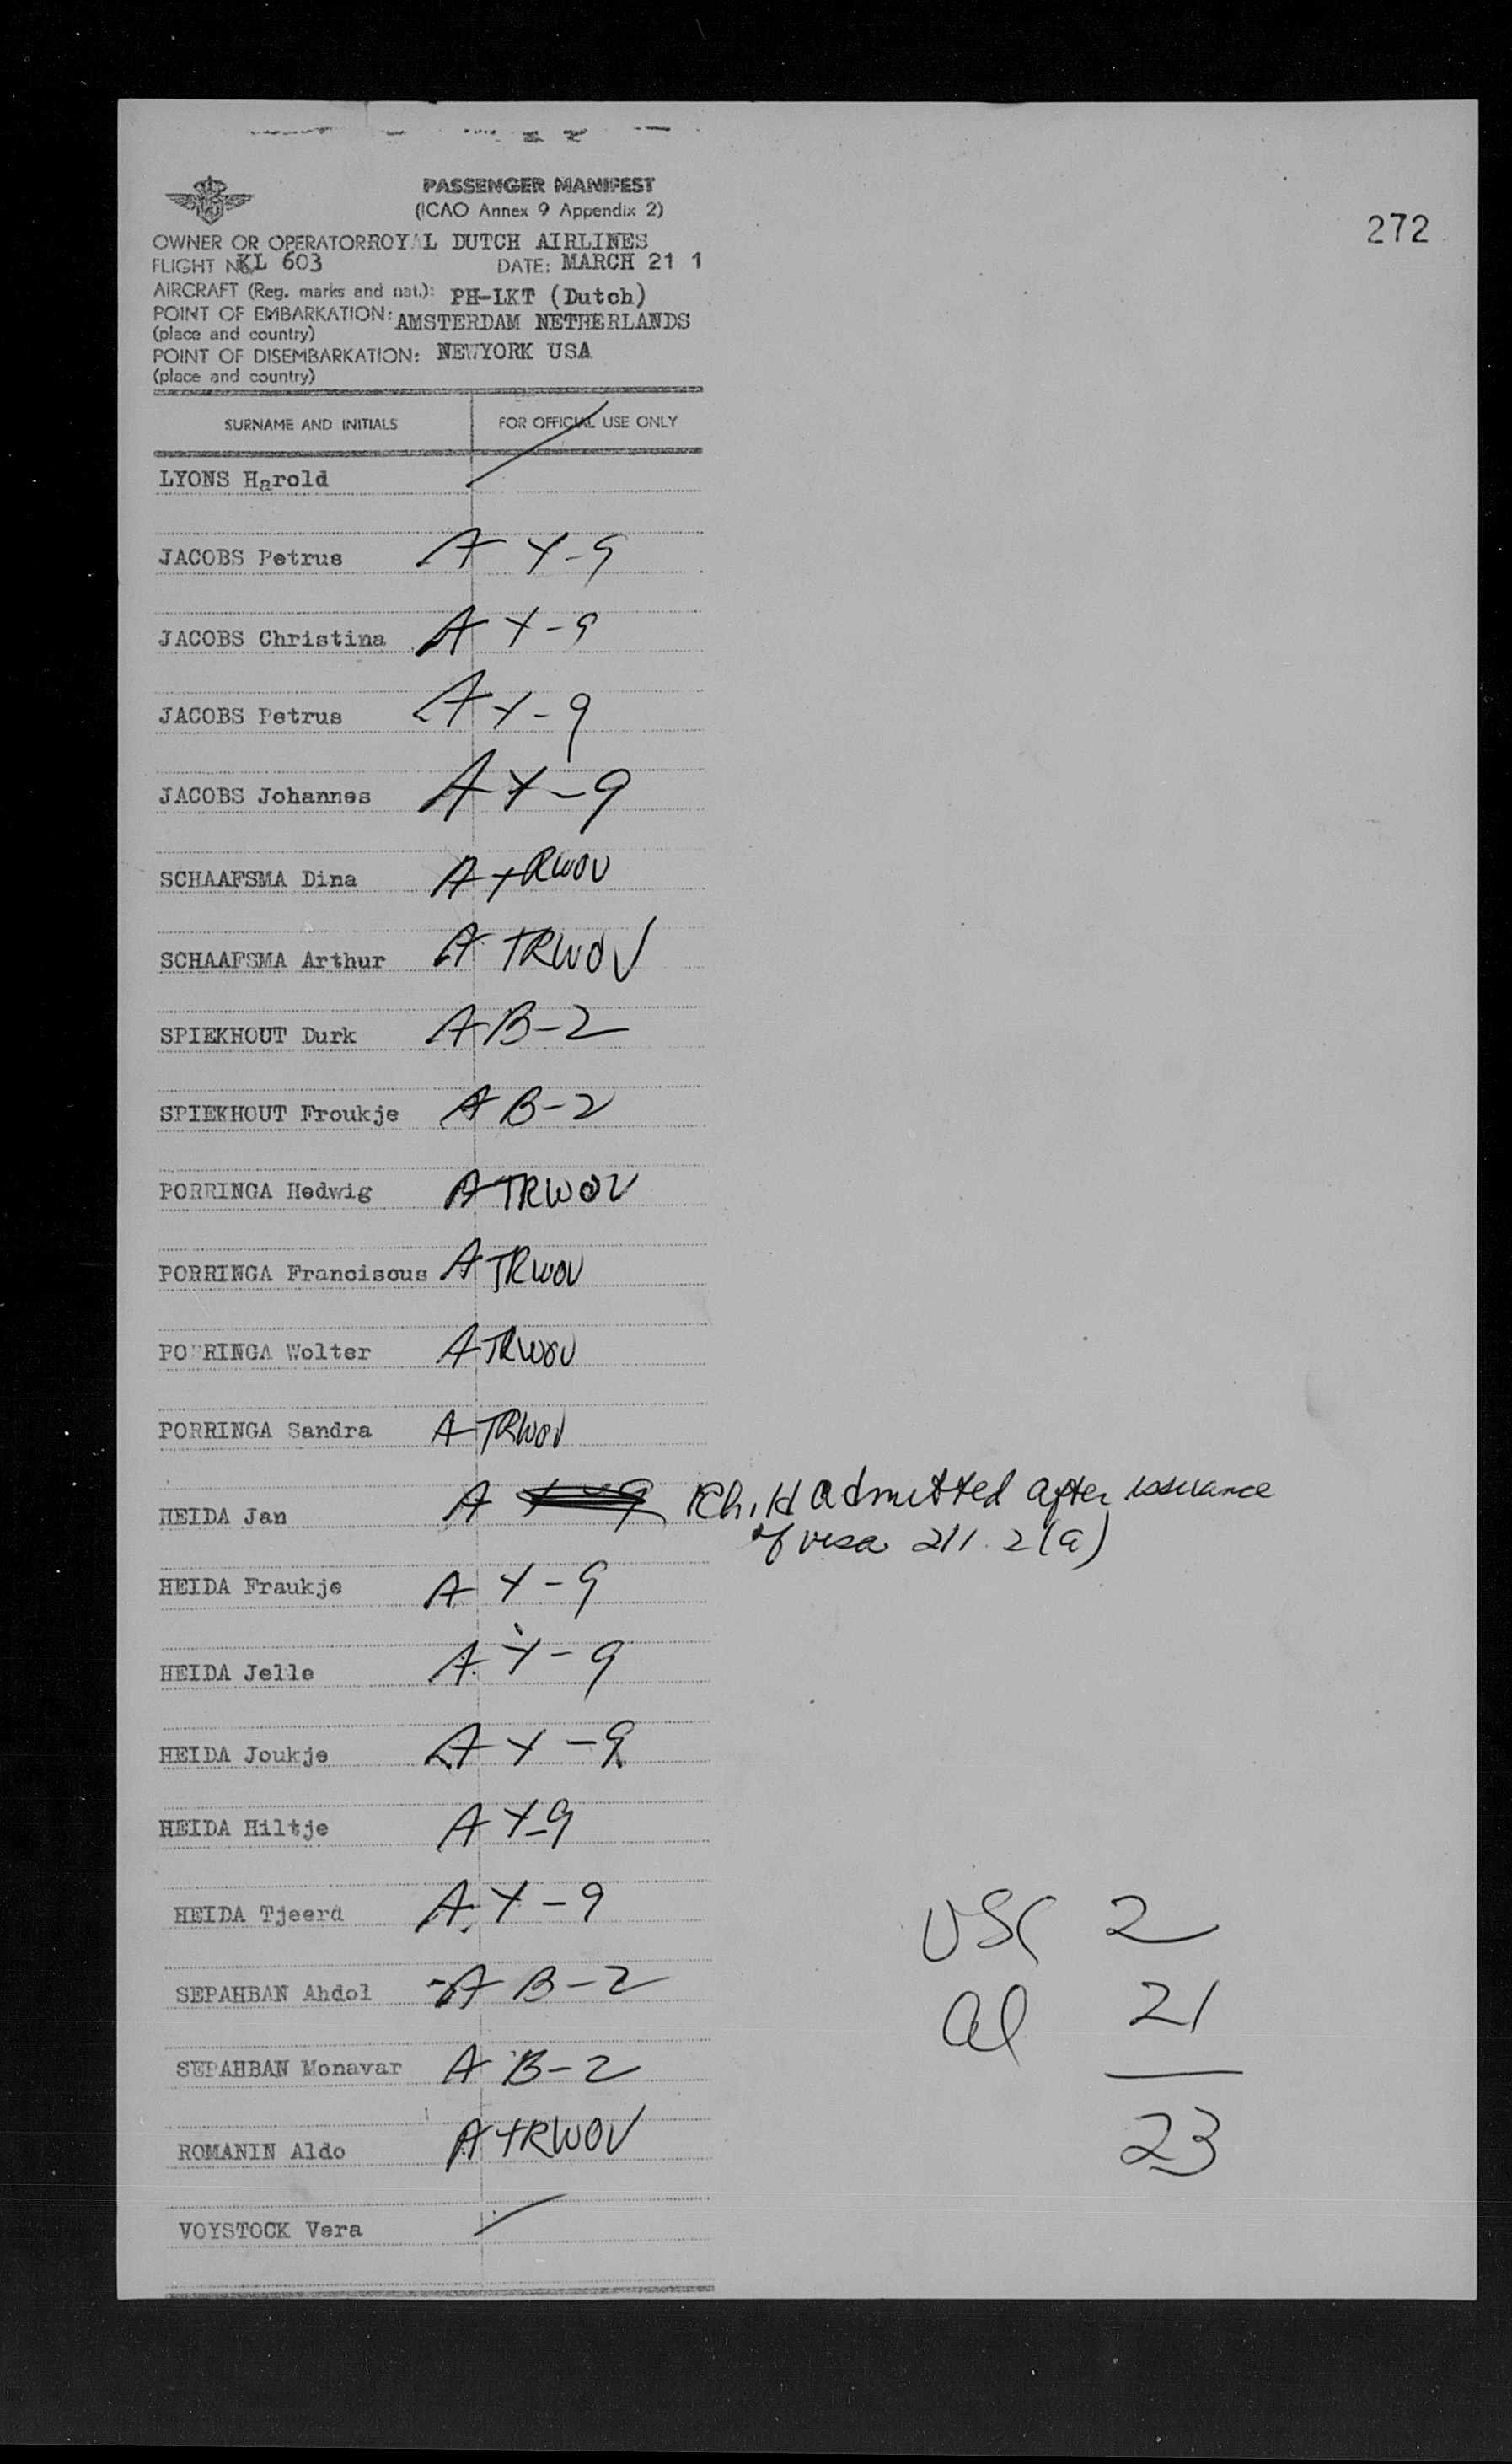 PASSENGER MANIFEST
(ICAO Annex 9 Appendix 2)
272
OWNER OR OPERATOR ROYAL DUTCH AIRLINES
FLIGHT No. KL 603 DATE: MARCH 21 1
AIRCRAFT (Reg. marks and nat.): PH-LKT (Dutch)
POINT OF EMBARKATION: AMSTERDAM NETHERLANDS
(place and country)
POINT OF DISEMBARKATION: NEWYORK USA
(place and country)
SURNAME AND INITIALS FOR OFFICIAL USE ONLY
LYONS Harold
JACOBS Petrus A Y-9
JACOBS Christina A Y-9
JACOBS Petrus A Y-9
JACOBS Johannes A Y-9
SCHAAFSMA Dina A TRWOV
SCHAAFSMA Arthur A TRWOV
SPIEKHOUT Durk A B-2
SPIEKHOUT Froukje A B-2
PORRINGA Hedwig A TRWOV
PORRINGA Franciscus A TRWOV
PORRINGA Wolter A TRWOV
PORRINGA Sandra A TRWOV
HEIDA Jan A Y-9 Child admitted after issuance
of visa 211.2(a)
HEIDA Fraukje A Y-9
HEIDA Jelle A Y-9
HEIDA Joukje A Y-9
HEIDA Hiltje A Y-9
HEIDA Tjeerd A Y-9
SEPAHBAN Ahdol A B-2
SEPAHBAN Monavar A B-2
ROMANIN Aldo A TRWOV
VOYSTOCK Vera
USC 2
al 21
23